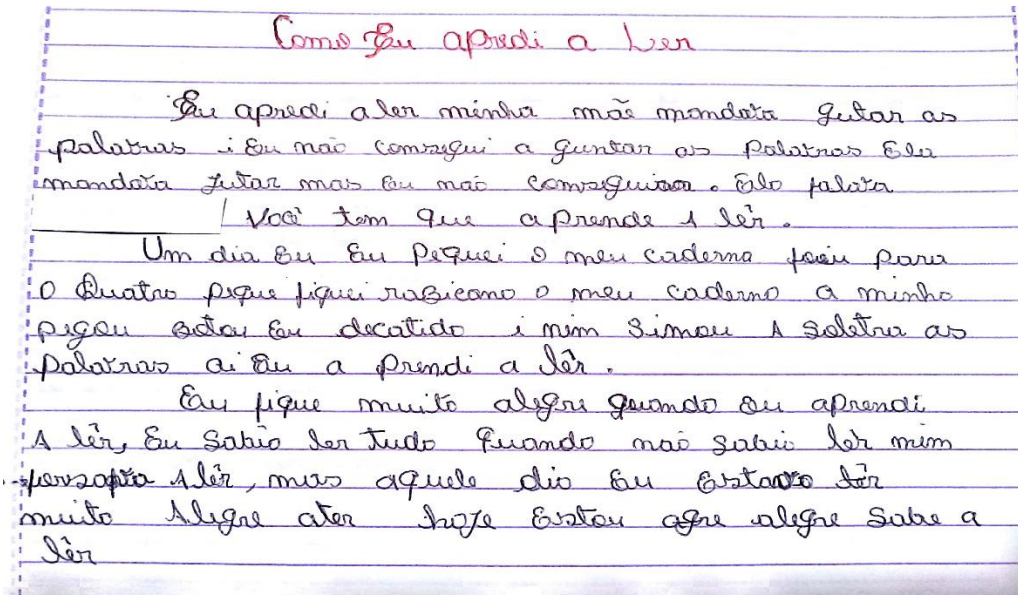 Como Eu apredi a Ler
Eu apredi a ler minha mãe mandava gutar as
palavras i Eu não consegui a guntar as Palavras Ela
mandava jutar mas Eu não conseguia. Ela falava
Você tem que aprende A lêr.
Um dia Eu Eu Peguei o meu caderno para
O Quatro pegue fiquei rabicano o meu caderno a minho
pegou botou Eu decatido i mim Simou A soletra as
Palavras ai Eu a Prendi a lêr.
Eu fique muito alegre quando Eu aprendi
A lêr, Eu Sabio ler tudo Quando não sabia lêr mim
A lêr, mas aquele dio Eu Estavo
muito Alegre ater hoje Estou alegre Sabe a
lêr